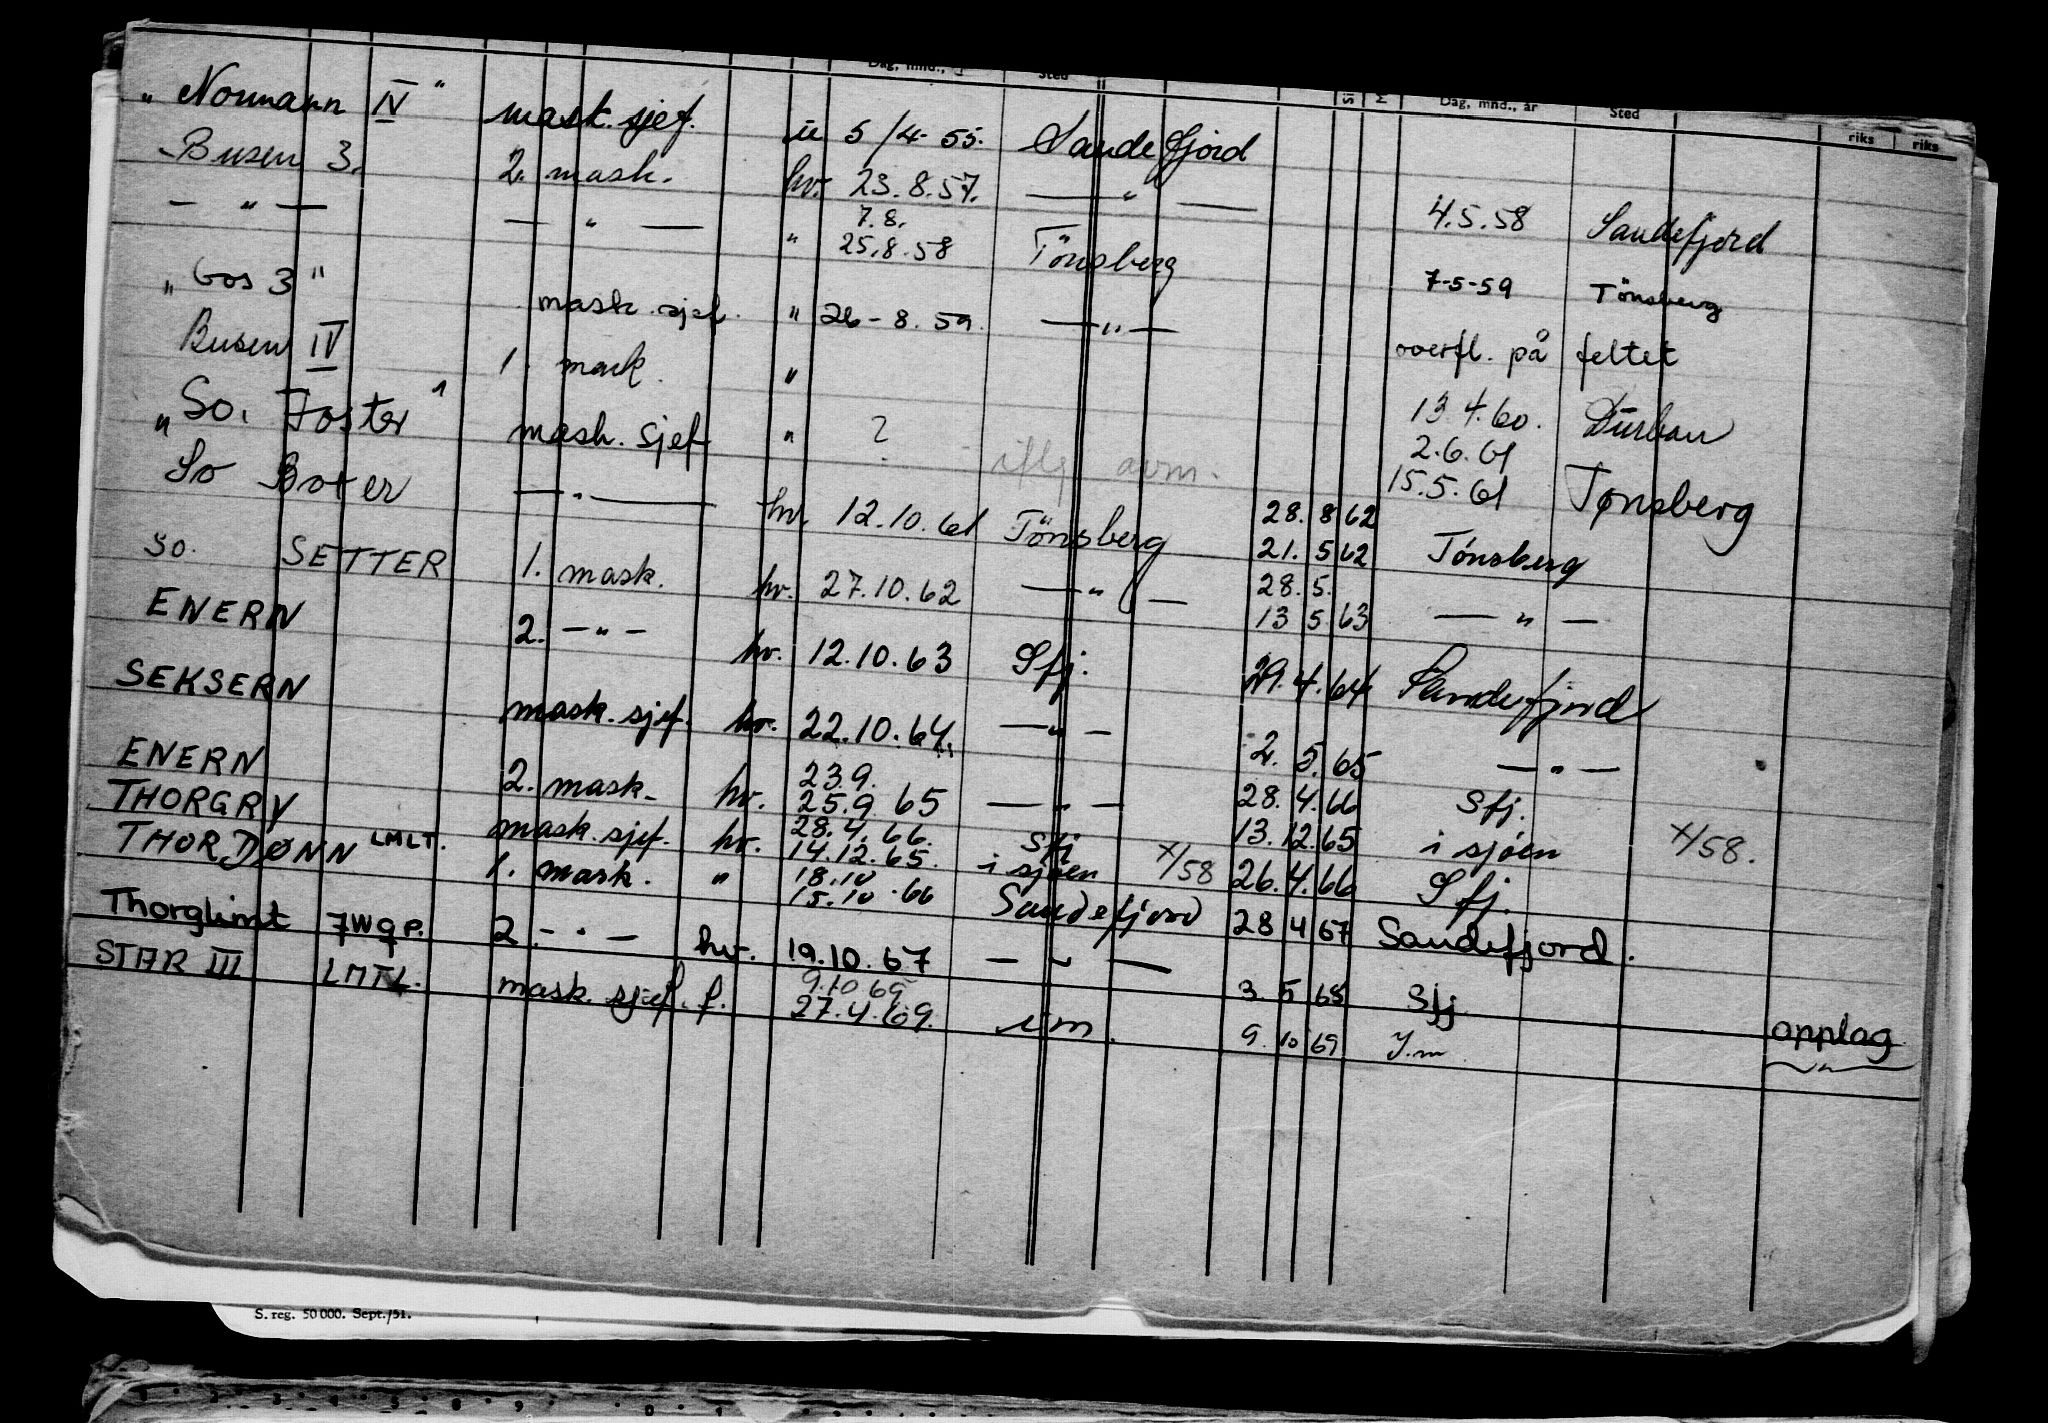 Dag, mnd., Sted Dag, mnd., år Sted riks riks
"Normann IV" mask. sjef. u 5/4-55. Sandefjord
Busen 3. 2. mask. hv. 23.8.57. — " — 4.5.58 Sandefjord
— " — — " — " 7.8. 25.8.58 Tönsberg 7-5-59 Tönsberg
"Gos 3" mask. sjef. " 26-8.59. — " — overfl. på feltet
Busen IV 1. mask. " 13.4.60. Durban
"So. Foster" mask. sjef " ? iflg avm. 2.6.61 15.5.61 Tønsberg
So Boter — " — hv. 12.10.61 Tönsberg 28. 8 62 21. 5 62 Tönsberg
So. SETTER 1. mask. hv. 27.10.62 — " — 28. 5. 13 5 63 — " —
ENERN 2. — " — hv. 12.10.63 Sfj. 29. 4. 64 Sandefjord
SEKSERN mask. sjef. hv. 22.10.64. — " — 2. 5. 65 — " —
ENERN 2. mask. hv. 23.9. 25.9 65 — " — 28. 4. 66 Sfj.
THORGRY mask. sjef. hv. 28.4.66. 14.12.65. Sfj i sjøen x/58 13. 12. 65 i sjøen x/58.
THORDØNN LMLT. 1. mask. " 18.10 15.10.66 Sandefjord 26. 4. 66 Sfj. 28 4 67 Sandefjord.
Thorglimt JWQP. 2. — " — hv. 19.10.67 — " — 3. 5 68 Sfj
STAR III LMTL. mask. sjef. f. 9.10 69 27.4.69. i.m. 9. 10 69 I.m. opplag
S. reg. 50 000. Sept./51.